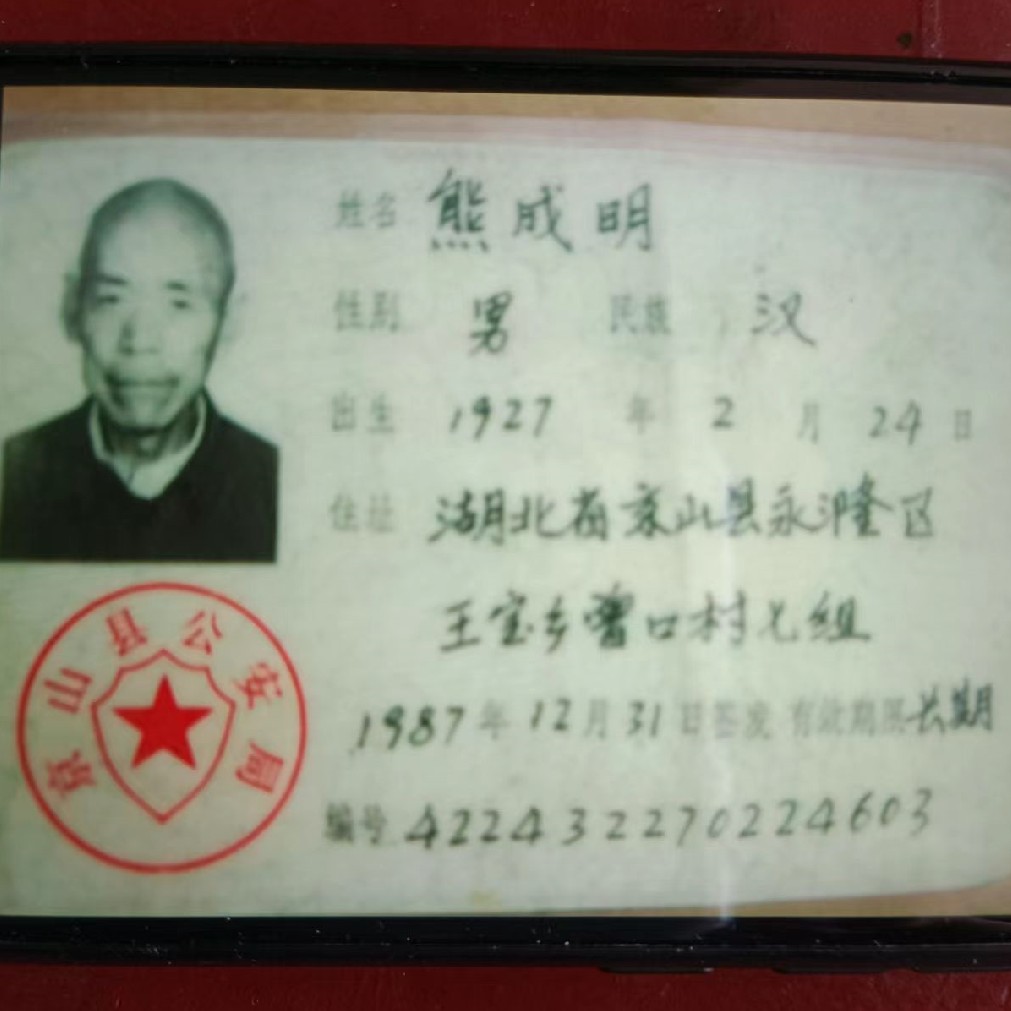 姓名 熊成明
性别 男 民族 汉
出生 1927 年 2 月 24 日
住址 湖北省京山县永漋区
王宝乡曾口村七组
1987年12月31日签发 有效期限长期
编号 422432270224603
京山县公安局